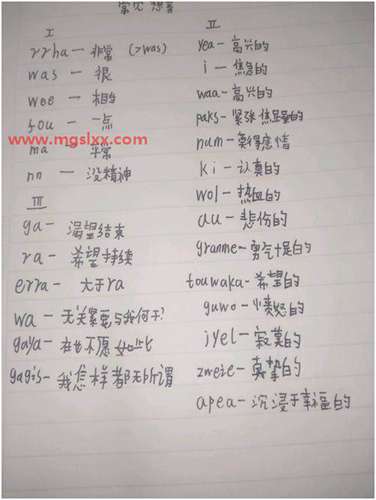 常见
I
rrha — 非常 (>was)
was — 很
wee — 相当
fou — 一点
www.mgslxx.com
ma —
nn — 没精神
III
ga — 渴望结束
ra — 希望持续
erra — 大于ra
wa — 无关紧要与我何干?
gaya — 在也不愿如此
gagis — 我怎样都无所谓
II
yea — 高兴的
i — 焦急的
waa — 高兴的
paks — 紧张焦虑的
num — 莫得感情
ki — 认真的
wol — 热血的
au — 悲伤的
granme — 勇气十足的
touwaka — 希望的
guwo — 愤怒的
iyel — 寂寞的
zweie — 真挚的
apea — 沉浸于幸福的